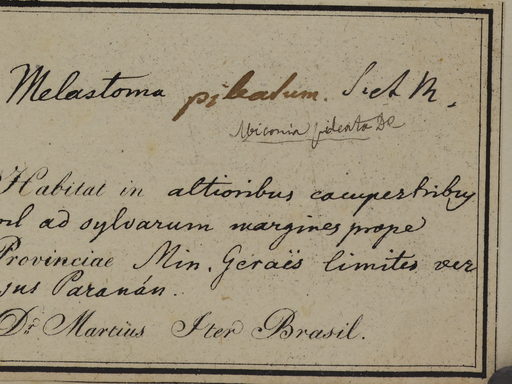 Melastoma pileatum. S. et M.
Miconia pileata DC
Habitat in altioribus campestribus
vel ad sylvarum margines prope
Provinciae Min. Geraës limites ver
sus Paranán.
Dr. Martius Iter Brasil.